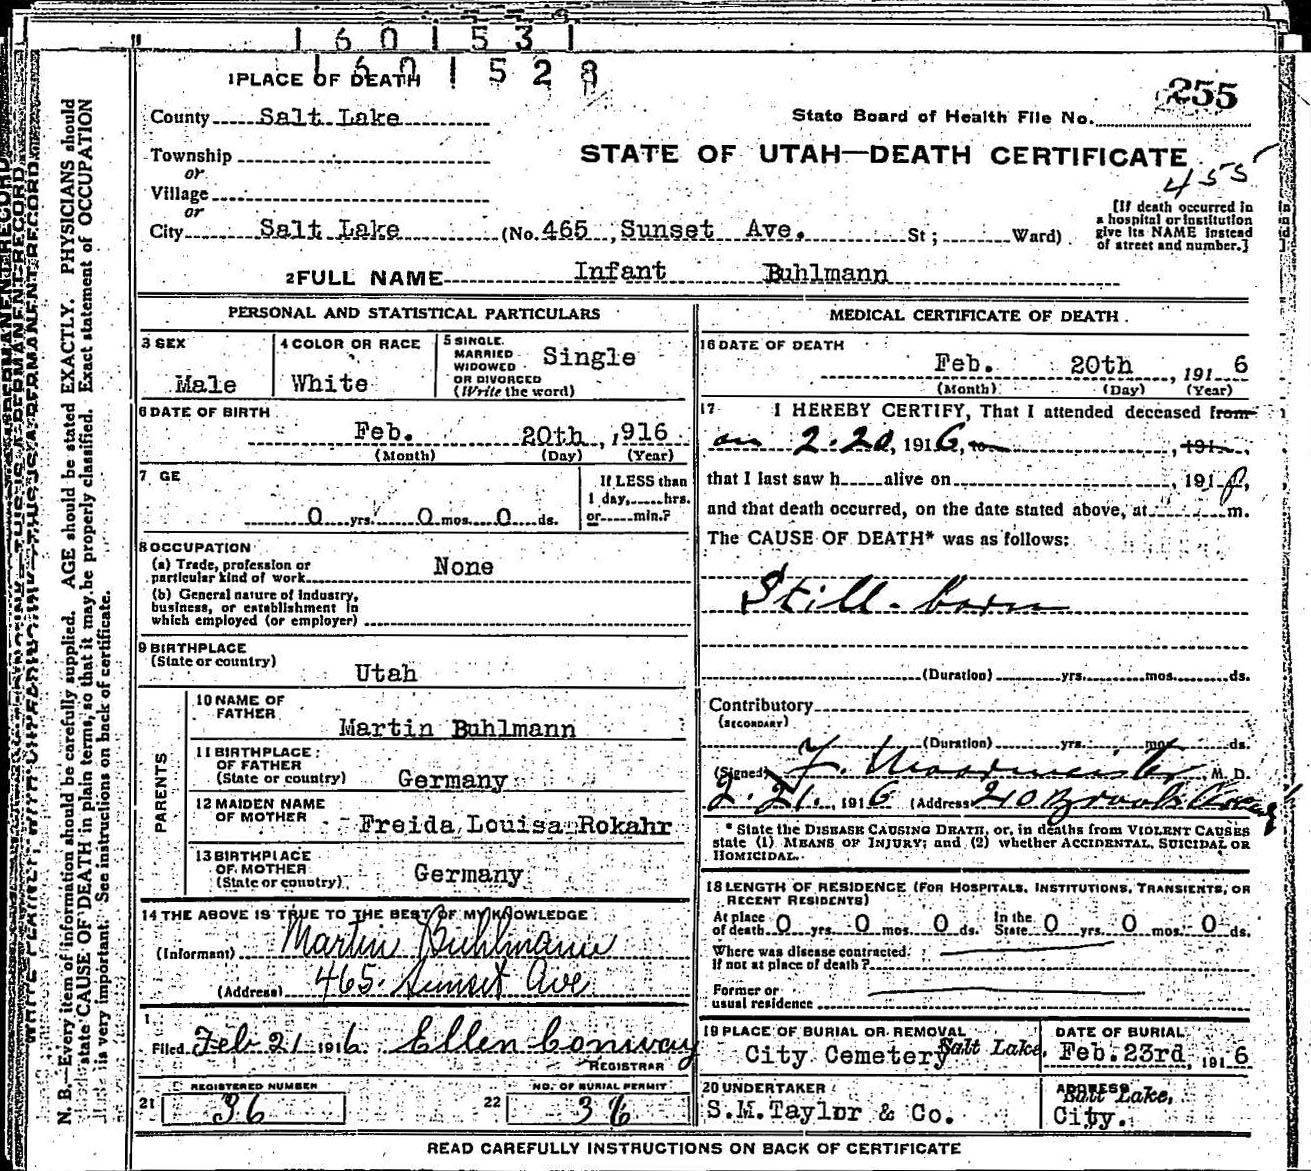 1 6 0 1 5 3 1
1 6 0 1 5 2 8
1 PLACE OF DEATH
255
County Salt Lake
State Board of Health File No.
Township
or
STATE OF UTAH—DEATH CERTIFICATE
455
Village
or
City Salt Lake (No. 465, Sunset Ave. St; Ward)
[If death occurred in
a hospital or institution
give its NAME instead
of street and number.]
2 FULL NAME Infant Buhlmann
PERSONAL AND STATISTICAL PARTICULARS
3 SEX
Male
4 COLOR OR RACE
White
5 SINGLE,
MARRIED
WIDOWED
OR DIVORCED
(Write the word)
Single
6 DATE OF BIRTH
Feb. 20th, ,916
(Month) (Day) (Year)
7 GE
0 yrs. 0 mos. 0 ds.
If LESS than
1 day, hrs.
or min.?
8 OCCUPATION
(a) Trade, profession or
particular kind of work None
(b) General nature of industry,
business, or establishment in
which employed (or employer)
9 BIRTHPLACE
(State or country)
Utah
PARENTS
10 NAME OF
FATHER
Martin Buhlmann
11 BIRTHPLACE
OF FATHER
(State or country) Germany
12 MAIDEN NAME
OF MOTHER
Freida Louisa Rokahr
13 BIRTHPLACE
OF MOTHER
(State or country) Germany
14 THE ABOVE IS TRUE TO THE BEST OF MY KNOWLEDGE
(Informant) Martin Buhlmann
(Address) 465 Sunset Ave
1
Filed Feb 21 1916 Ellen Conway
REGISTRAR
REGISTERED NUMBER
21 36
NO. OF BURIAL PERMIT
22 36
MEDICAL CERTIFICATE OF DEATH
16 DATE OF DEATH
Feb. 20th, 191 6
(Month) (Day) (Year)
17 I HEREBY CERTIFY, That I attended deceased from
on 2.20, 1916, to , 191
that I last saw h alive on , 191
and that death occurred, on the date stated above, at m.
The CAUSE OF DEATH* was as follows:
Still-born
(Duration) yrs. mos. ds.
Contributory
(SECONDARY)
(Duration) yrs. mos. ds.
(Signed) M. D.
2.21., 1916 (Address
* State the DISEASE CAUSING DEATH, or, in deaths from VIOLENT CAUSES
state (1) MEANS OF INJURY; and (2) whether ACCIDENTAL, SUICIDAL OR
HOMICIDAL.
18 LENGTH OF RESIDENCE (FOR HOSPITALS, INSTITUTIONS, TRANSIENTS, OR
RECENT RESIDENTS)
At place
of death 0 yrs. 0 mos. 0 ds. In the
State 0 yrs. 0 mos. 0 ds.
Where was disease contracted.
If not at place of death?
Former or
usual residence
19 PLACE OF BURIAL OR REMOVAL
City Cemetery Salt Lake,
DATE OF BURIAL
Feb. 23rd, 191 6
20 UNDERTAKER
S.M.Taylor & Co.
ADDRESS
Salt Lake,
City.
READ CAREFULLY INSTRUCTIONS ON BACK OF CERTIFICATE
N. B.—Every item of information should be carefully supplied. AGE should be stated EXACTLY. PHYSICIANS should
state CAUSE OF DEATH in plain terms, so that it may be properly classified. Exact statement of OCCUPATION
is very important. See instructions on back of certificate.